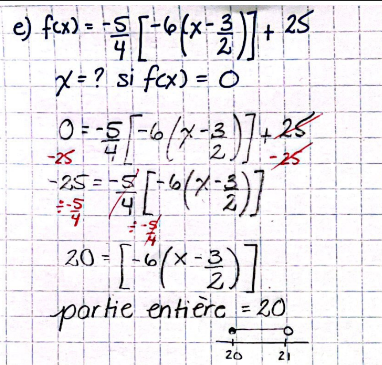 e) f(x) = -5/4 [-6(x - 3/2)] + 25
x = ? si f(x) = 0
0 = -5/4 [-6(x - 3/2)] + 25
-25 -25
-25 = -5/4 [-6(x - 3/2)]
÷ -5/4 ÷ -5/4
20 = [-6(x - 3/2)]
partie entière = 20
20 21